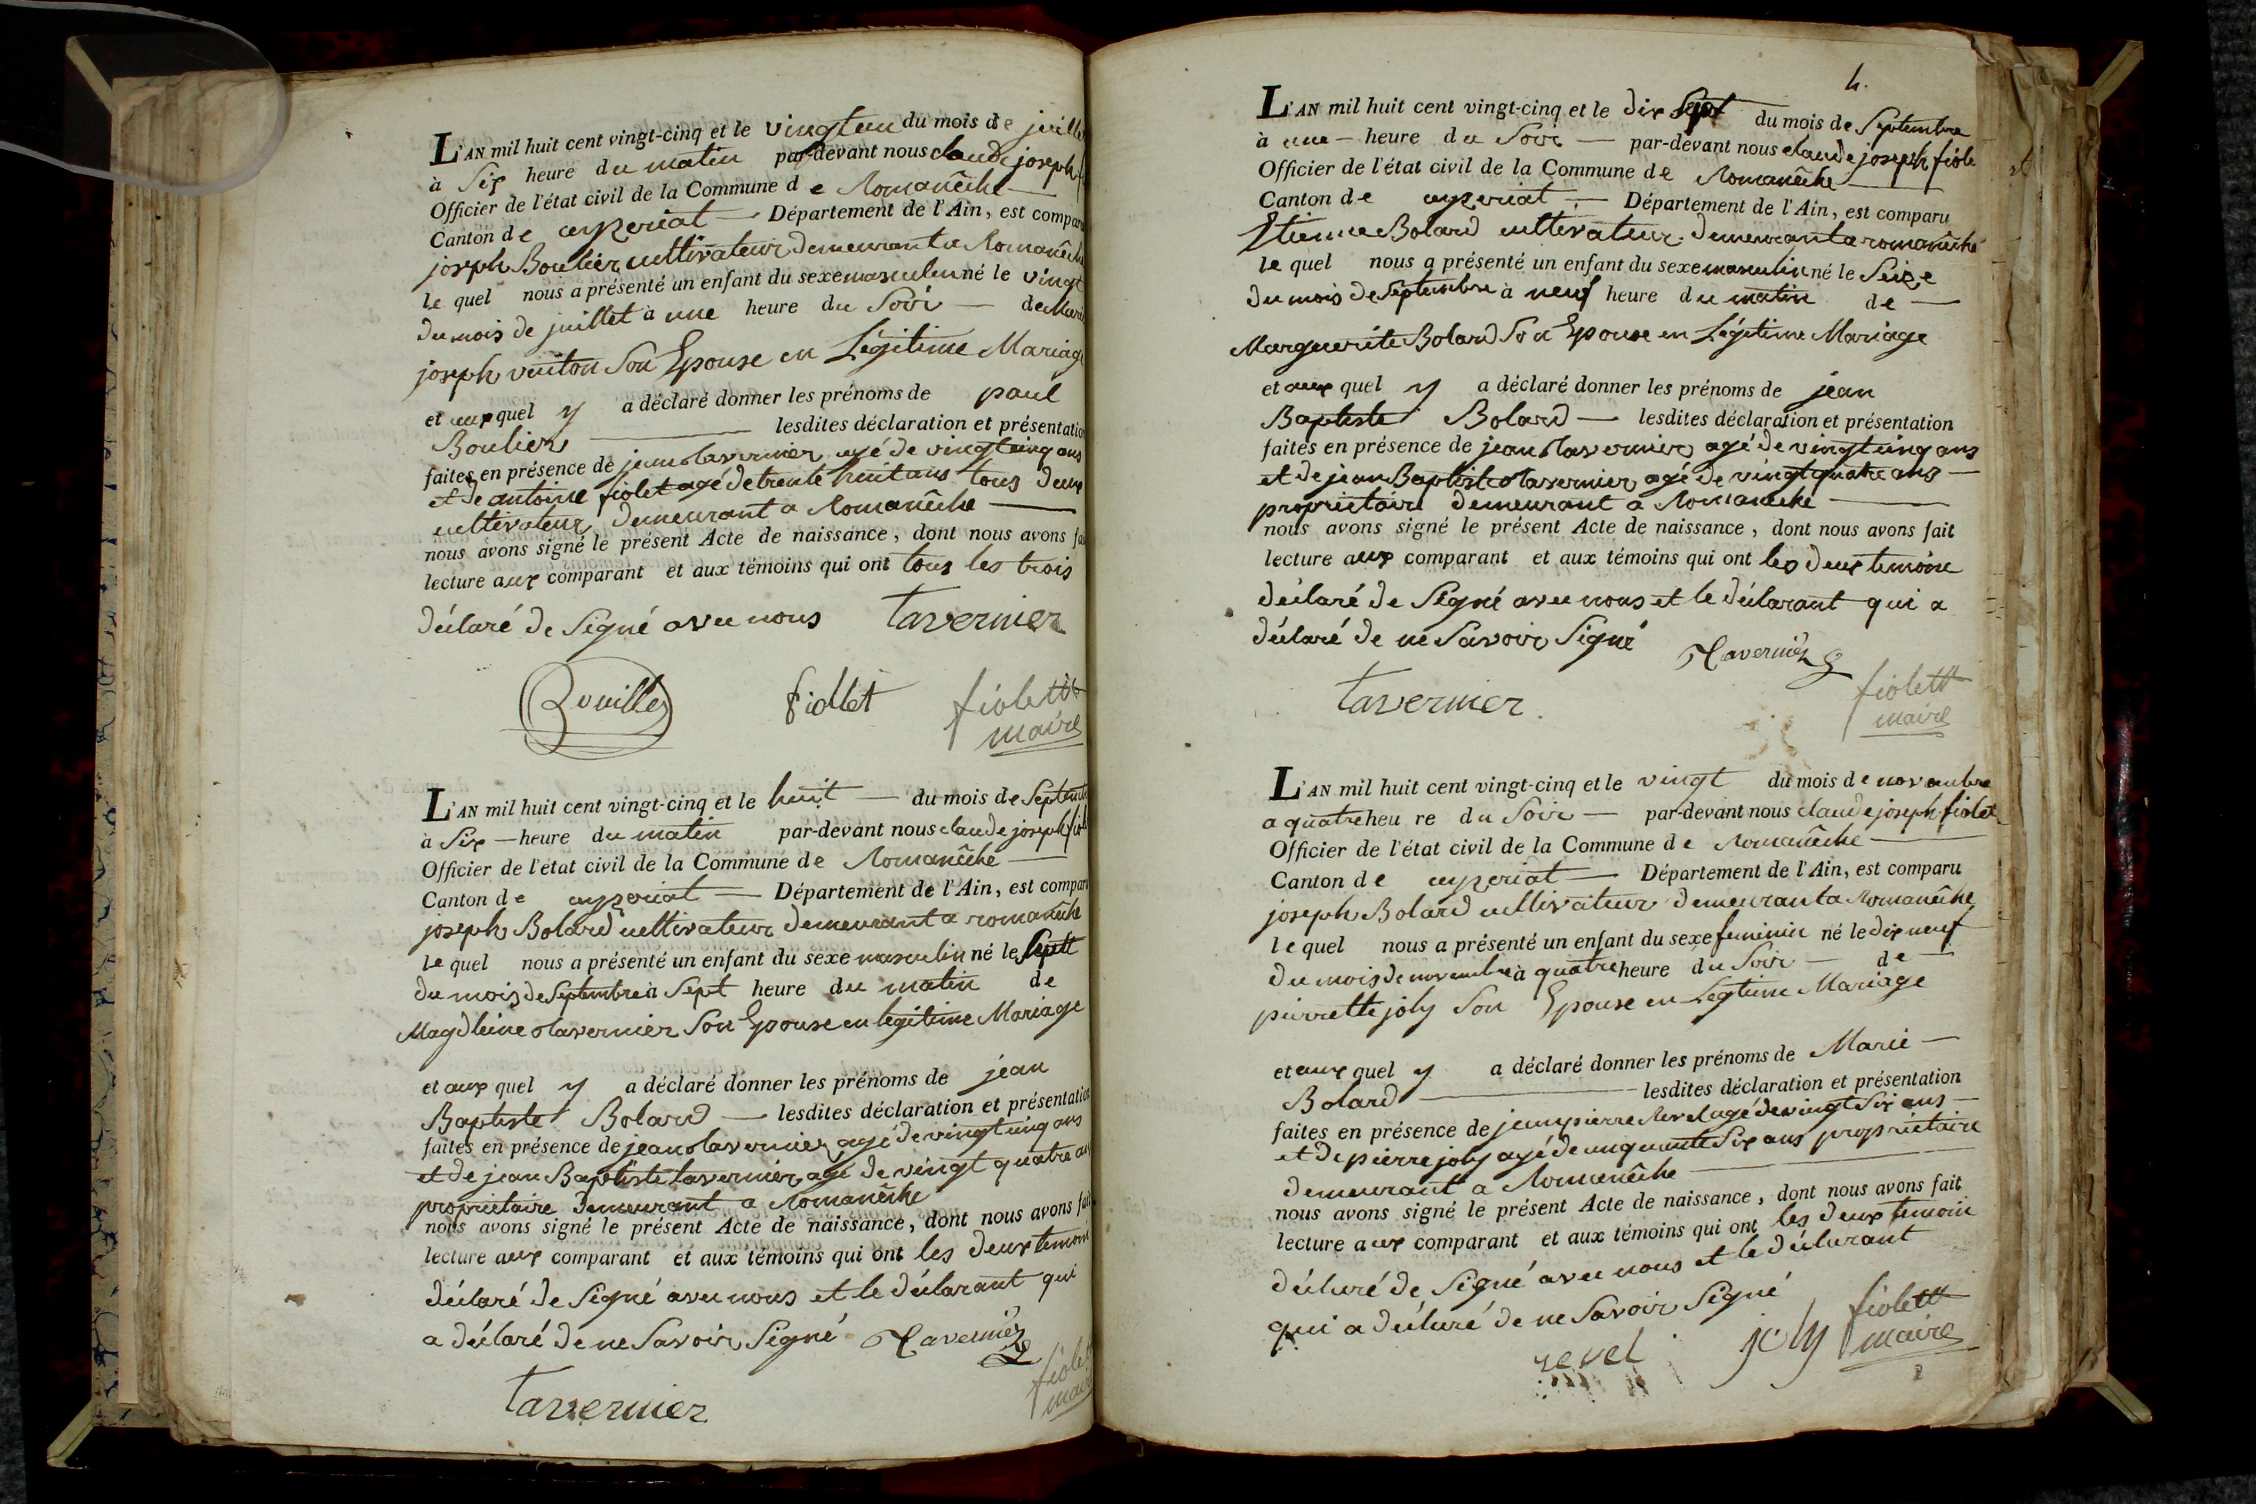 L'AN mil huit cent vingt-cinq et le vingt un du mois de juillet
à Six heure du matin par-devant nous claude joseph
Officier de l'état civil de la Commune de Romanêche
Canton de ceyzeriat Département de l'Ain, est comparu
joseph Boulier cultivateur demeurant a Romanêche
le quel nous a présenté un enfant du sexe masculin né le vingt
du mois de juillet à une heure du Soir de Marie
joseph vuiton Son Epouse en Légitime Mariage
et aux quel y a déclaré donner les prénoms de paul
Boulier lesdites déclaration et présentation
faites en présence de jean tavernier agé de vingt cinq ans
et de antoine fiolet agé de trente huit ans tous deux
cultivateur demeurant a Romanêche
nous avons signé le présent Acte de naissance, dont nous avons fait
lecture aux comparant et aux témoins qui ont tous les trois
déclaré de Signé avec nous Tavernier
Bouillet fiollet fiolett
maire
L'AN mil huit cent vingt-cinq et le huit du mois de Septembre
à Six heure du matin par-devant nous claude joseph fiole
Officier de l'état civil de la Commune de Romanêche
Canton de ceyzeriat Département de l'Ain, est comparu
joseph Bolard cultivateur demeurant a romanêche
le quel nous a présenté un enfant du sexe masculin né le Sept
du mois de Septembre à Sept heure du matin de
Magdleine tavernier Son Epouse en legitime Mariage
et aux quel y a déclaré donner les prénoms de jean
Baptiste Bolard lesdites déclaration et présentation
faites en présence de jean tavernier agé de vingt cinq ans
et de jean Baptiste tavernier agé de vingt quatre ans
propriétaire demeurant a Romanêche
nous avons signé le présent Acte de naissance, dont nous avons fait
lecture aux comparant et aux témoins qui ont les deux temoin
déclaré de Signé avec nous et le déclarant qui
a déclaré de ne Savoir Signé Tavernier
Tavernier fiolet
maire
4.
L'AN mil huit cent vingt-cinq et le dix Sept du mois de Septembre
à une heure du Soir par-devant nous claude joseph fiole
Officier de l'état civil de la Commune de Romanêche
Canton de ceyzeriat Département de l'Ain, est comparu
Etienne Bolard cultivateur demeurant a romanêche
le quel nous a présenté un enfant du sexe masculin né le Seize
du mois de Septembre à neuf heure du matin de
Marguerite Bolard Son Epouse en Légitime Mariage
et aux quel y a déclaré donner les prénoms de jean
Baptiste Bolard lesdites déclaration et présentation
faites en présence de jean tavernier agé de vingt cinq ans
et de jean Baptiste tavernier agé de vingt quatre ans
propriétaire demeurant a Romanêche
nous avons signé le présent Acte de naissance, dont nous avons fait
lecture aux comparant et aux témoins qui ont les deux temoin
déclaré de Signé avec nous et le déclarant qui a
déclaré de ne Savoir Signé Tavernier
Tavernier fiolett
maire
L'AN mil huit cent vingt-cinq et le vingt du mois de novembre
a quatre heure du Soir par-devant nous claude joseph fiolet
Officier de l'état civil de la Commune de Romanêche
Canton de ceyzeriat Département de l'Ain, est comparu
joseph Bolard cultivateur demeurant a Romanêche
le quel nous a présenté un enfant du sexe feminin né le dix neuf
du mois de novembre à quatre heure du Soir de
pierrette joly Son Epouse en Legtime Mariage
et aux quel y a déclaré donner les prénoms de Marie
Bolard lesdites déclaration et présentation
faites en présence de jean pierre Revel agé de vingt Six ans
et de pierre joly agé de cinquante Six ans propriétaire
demeurant a Romanêche
nous avons signé le présent Acte de naissance, dont nous avons fait
lecture aux comparant et aux témoins qui ont les deux temoin
déclaré de Signé avec nous et le déclarant
qui a déclaré de ne Savoir Signé fiolett
revel joly maire